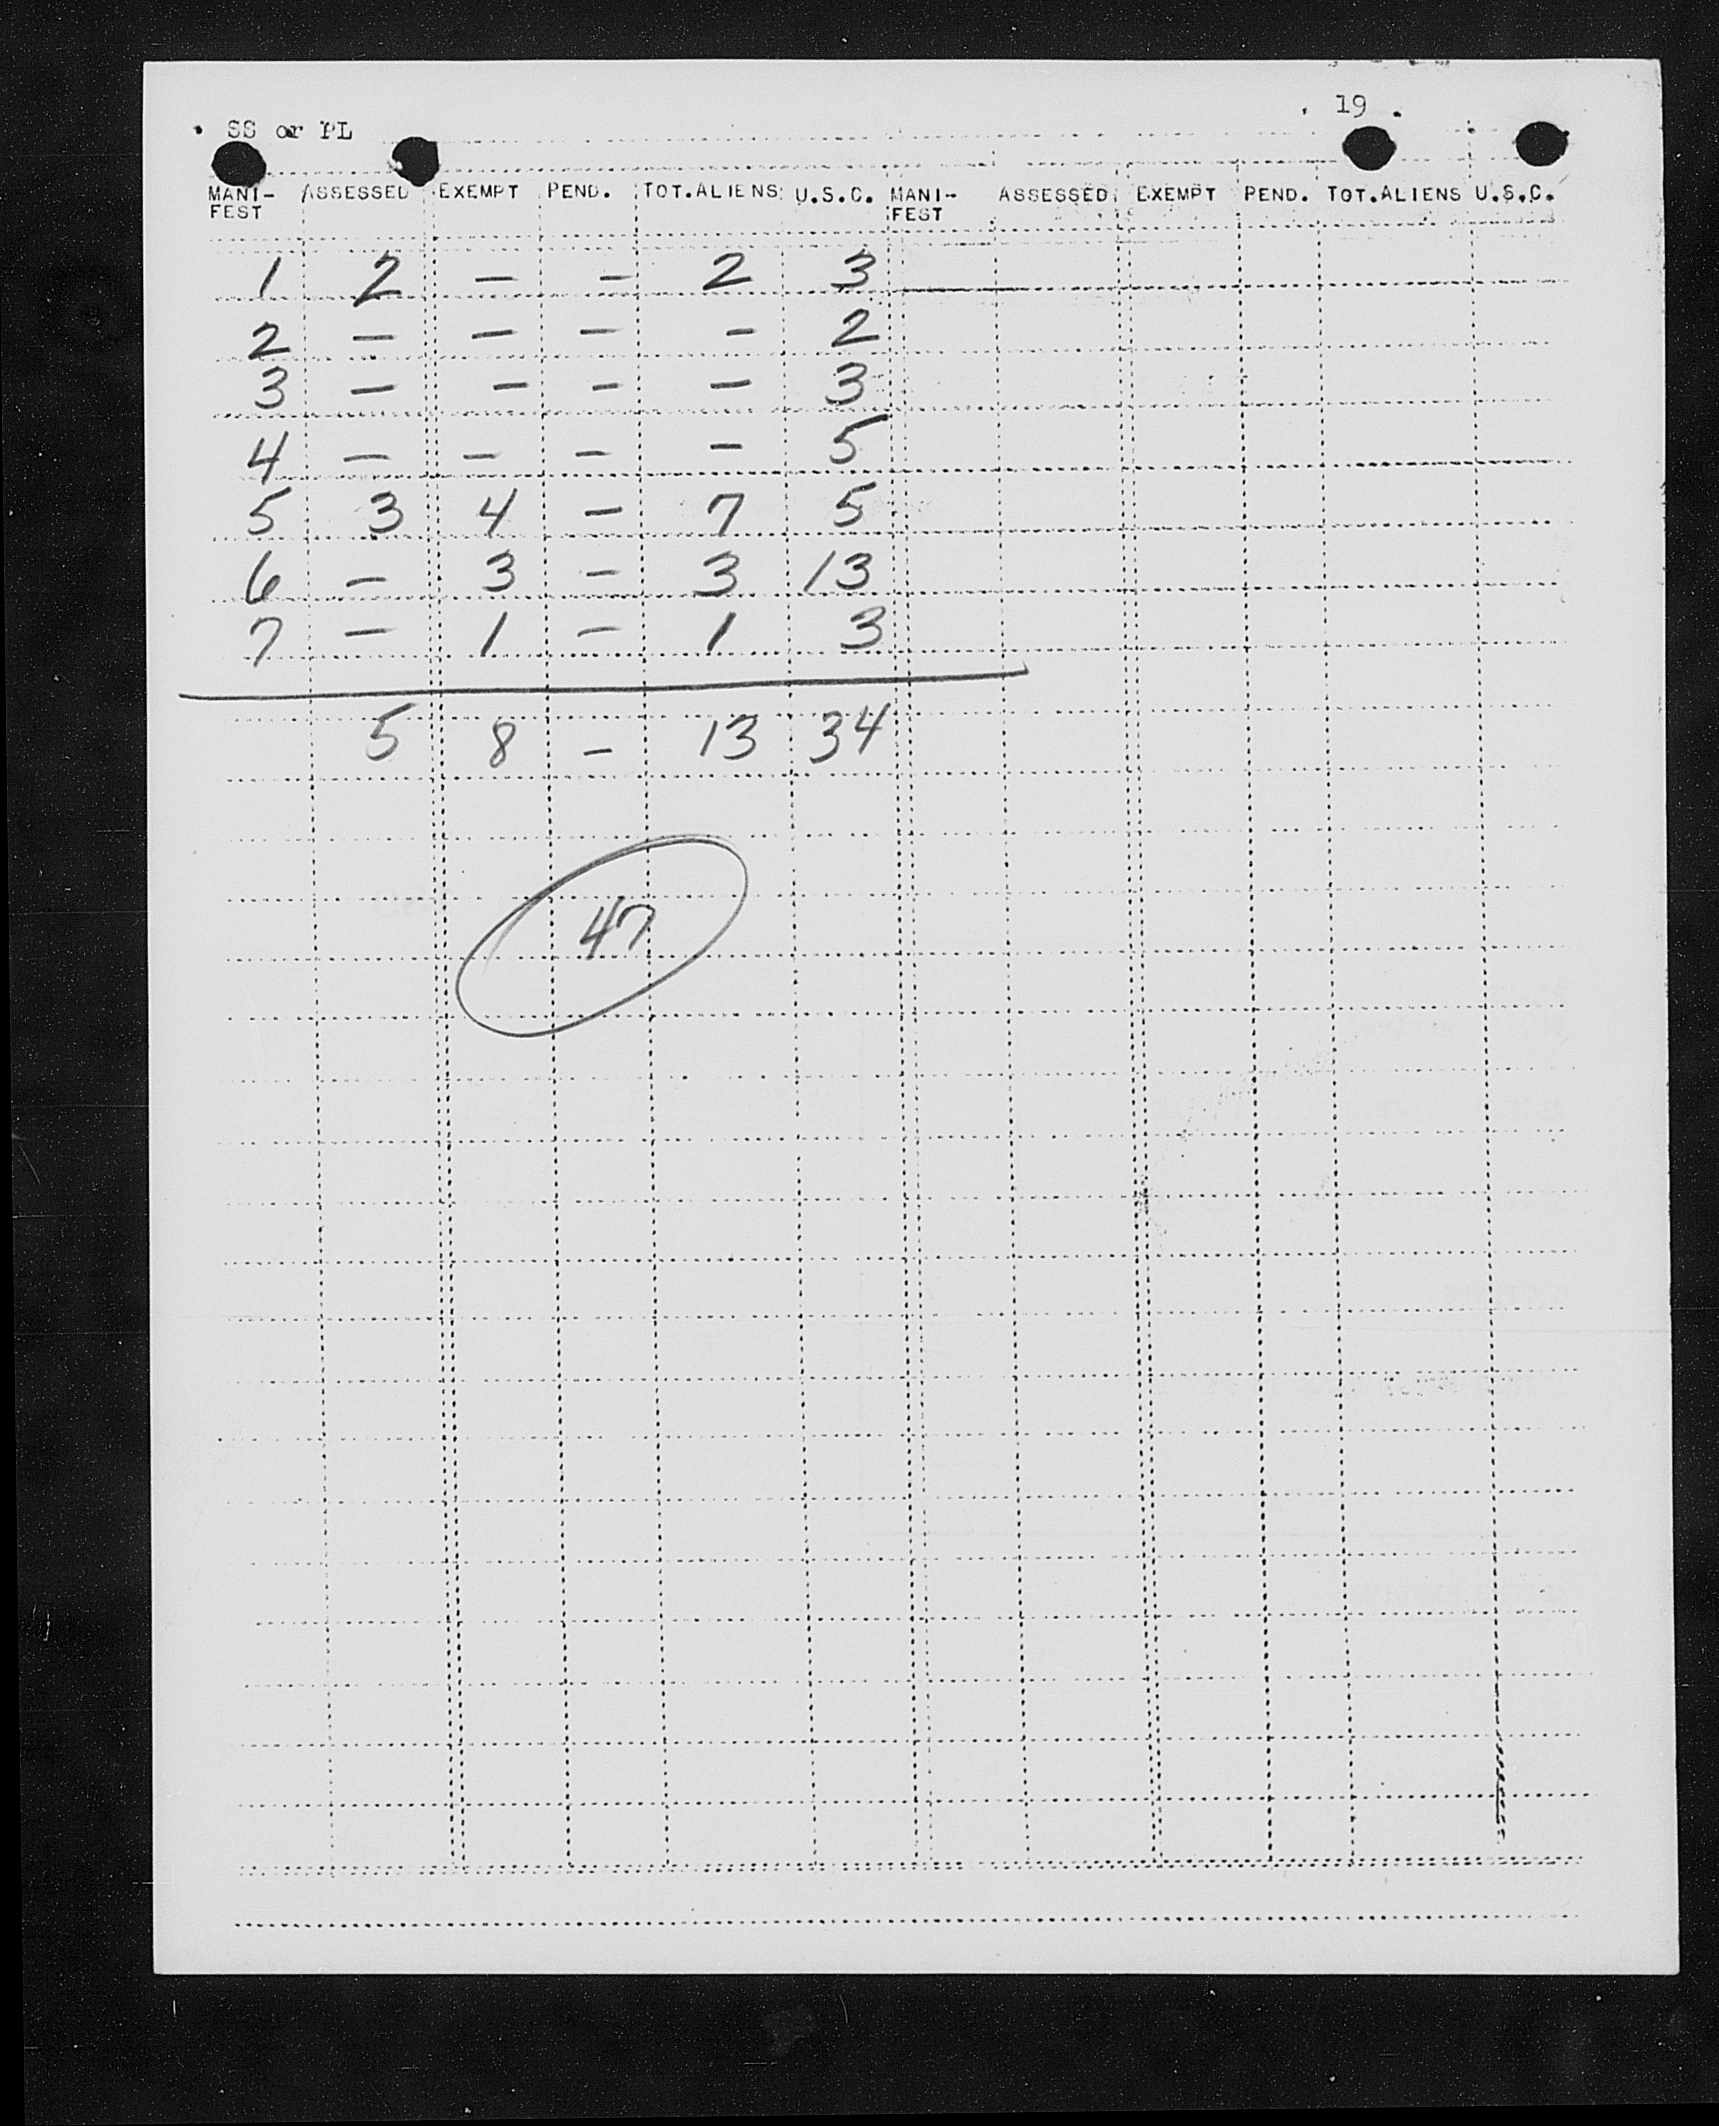 SS or PL 19
MANI-FEST ASSESSED EXEMPT PEND. TOT.ALIENS U.S.C. MANI-FEST ASSESSED EXEMPT PEND. TOT.ALIENS U.S.C.
1 2 – – 2 3
2 – – – – 2
3 – – – – 3
4 – – – – 5
5 3 4 – 7 5
6 – 3 – 3 13
7 – 1 – 1 3
5 8 – 13 34
47